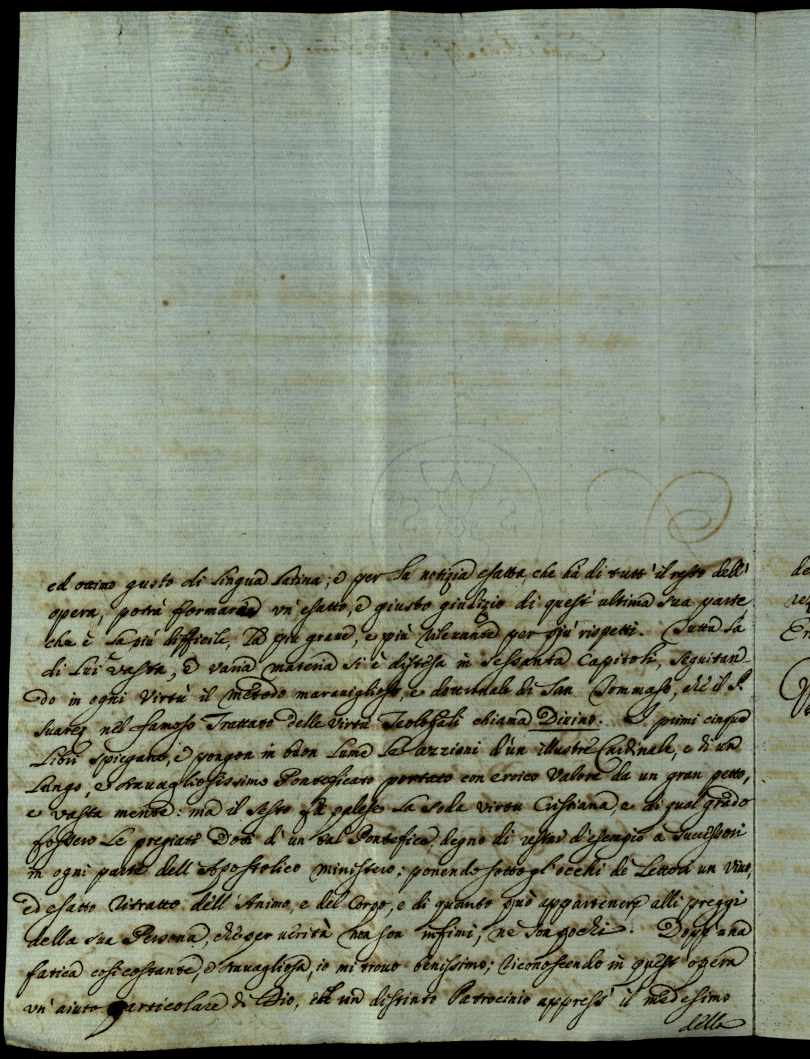 ed ottimo gusto di lingua latina; e per la notizia esatta, che hà di tutt' il resto dell'
opera, potrà formarne un' esatto, e giusto giudizio di quest' ultima sua parte
che è la più difficile, la più grave, e più rilevante per più rispetti. Tutta la
di Lui vasta, e varia materia si è distesa in sessanta Capitoli, seguitan-
do in ogni Virtù il metodo maraviglioso, e dottrinale di San Tommaso, che il P.
Suarez nel famoso Trattato delle Virtù Teologali chiama Divino. I primi cinque
Libri spiegano, e pongon in buon lume le azzioni d'un illustre Cardinale, e di un
Lungo, e travagliosissimo Pontificato portato con eroico valore da un gran petto,
e vasta mente: ma il sesto fà palese la soda virtù Cristiana, e di qual grado
fossero le pregiate Doti d' un tal Pontefice, degno di restar d'esempio a successori
in ogni parte dell' Apostolico ministero: ponendo sotto gl' occhi de Lettori un vivo,
ed esatto ritratto dell' Animo, e del Corpo, e di quanto può appartenere alli preggi
della sua Persona, che per verità non son infimi, ne son pochi. Dopo una
fatica così costante, e travagliosa, io mi trovo benissimo; riconoscendo in quest' opera
un' aiuto particolare di Dio, ed un distinto Patrocinio appress' il medesimo
della